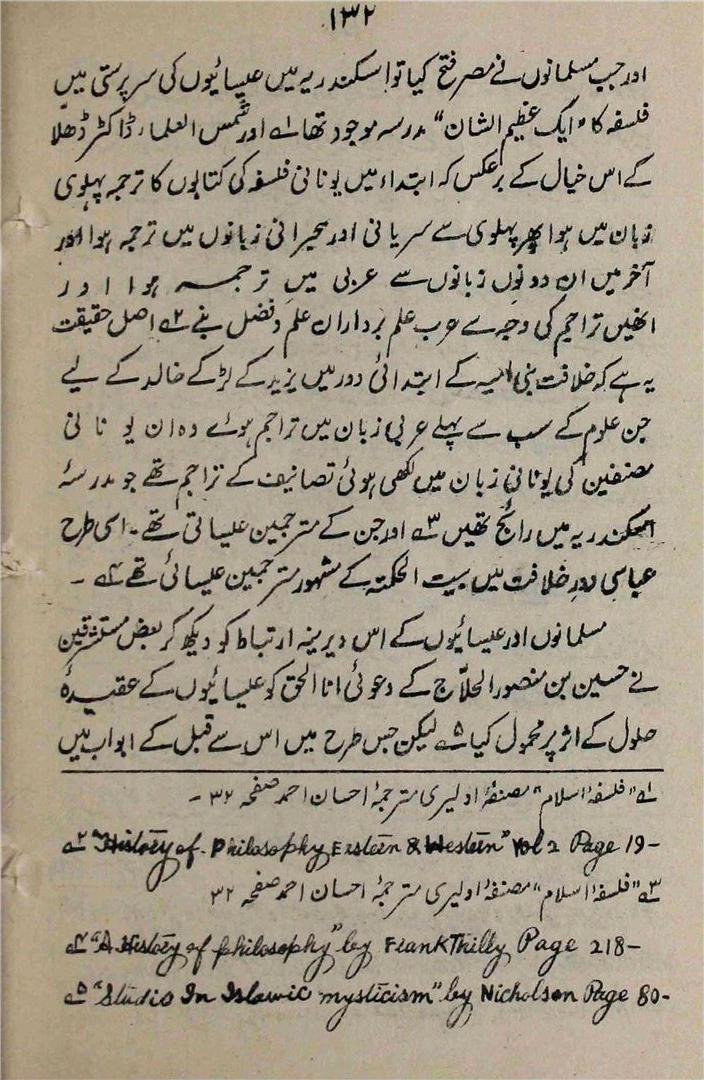 ۱۳۲
اور جب مسلمانوں نے مصر فتح کیا تو اسکندریہ میں عیسائیوں کی سرپرستی میں
فلسفہ کا "ایک عظیم الشان" مدرسہ موجود تھا ۱؎ اور شمس العلماء ڈاکٹر ڈھلا
کے اس خیال کے برعکس کہ ابتداء میں یونانی فلسفہ کی کتابوں کا ترجمہ پہلوی
زبان میں ہوا پھر پہلوی سے سریانی اور عبرانی زبانوں میں ترجمہ ہوا اور
آخر میں ان دونوں زبانوں سے عربی میں ترجمہ ہوا اور
انھیں تراجم کی وجہ سے عرب علم برداران علم و فضل بنے ۲؎ اصل حقیقت
یہ ہے کہ خلافت بنی امیہ کے ابتدائی دور میں یزید کے لڑکے خالد کے لیے
جن علوم کے سب سے پہلے عربی زبان میں تراجم ہوئے وہ ان یونانی
مصنفین کی یونانی زبان میں لکھی ہوئی تصانیف کے تراجم تھے جو مدرسۂ
اسکندریہ میں رائج تھیں ۳؎ اور جن کے مترجمین عیسائی تھے۔ اسی طرح
عباسی دور خلافت میں بیت الحکمتہ کے مشہور مترجمین عیسائی تھے ۴؎ ۔
مسلمانوں اور عیسائیوں کے اس دیرینہ ارتباط کو دیکھ کر بعض مستشرقین
نے حسین بن منصور الحلاّج کے دعوئی انا الحق کو عیسائیوں کے عقیدۂ
حلول کے اثر پر محمول کیا ۵؎ لیکن جس طرح میں اس سے قبل کے ابواب میں
۱؎ "فلسفۂ اسلام" مصنفۂ اولیری مترجمۂ احسان احمد صفحہ ۳۲ ۔
۲؎ "History of. Philosophy Eestern & Western" Vol 2 Page 19-
۳؎ "فلسفۂ اسلام" مصنفۂ اولیری مترجمۂ احسان احمد صفحہ ۳۲
۴؎ "A History of philosophy" by Frank Thilly Page 218-
۵؎ "Studio In Islamic mysticism" by Nicholson Page 80-